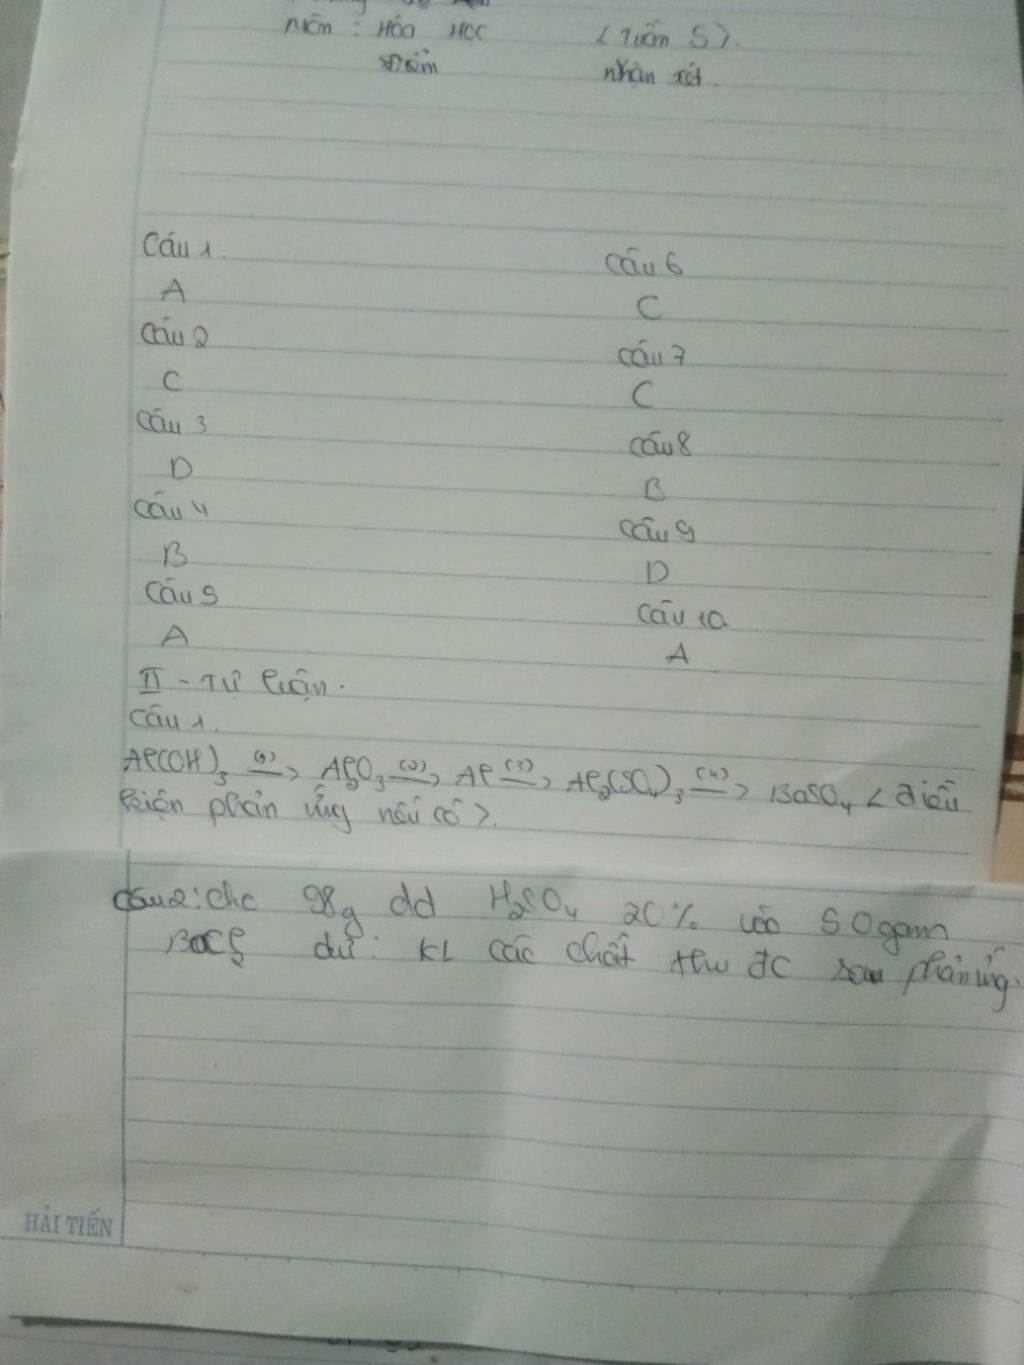 Môn : Hóa Học (Tuần 5).
Điểm nhận xét.
Câu 1. Câu 6
A C
Câu 2 Câu 7
C C
Câu 3 Câu 8
D B
Câu 4 Câu 9
B D
Câu 5 Câu 10
A A
II - Tự luận.
Câu 1.
Al(OH)3 (1)→ Al2O3 (2)→ Al (3)→ Al2(SO4)3 (4)→ BaSO4 < điều
kiện phản ứng nếu có >.
Câu 2: Cho 98g dd H2SO4 20% vào 50gam
BaCl2 dư: KL các chất thu đc sau phản ứng.
HẢI TIẾN